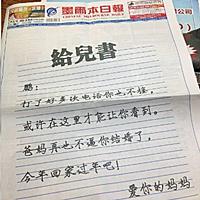 墨爾本日報
CHINESE MELBOURNE DAILY
給兒書
鵬：
打了好多次电话你也不接，
或许在这里才能让你看到。
爸妈再也不逼你结婚了，
今年回家过年吧！
爱你的妈妈